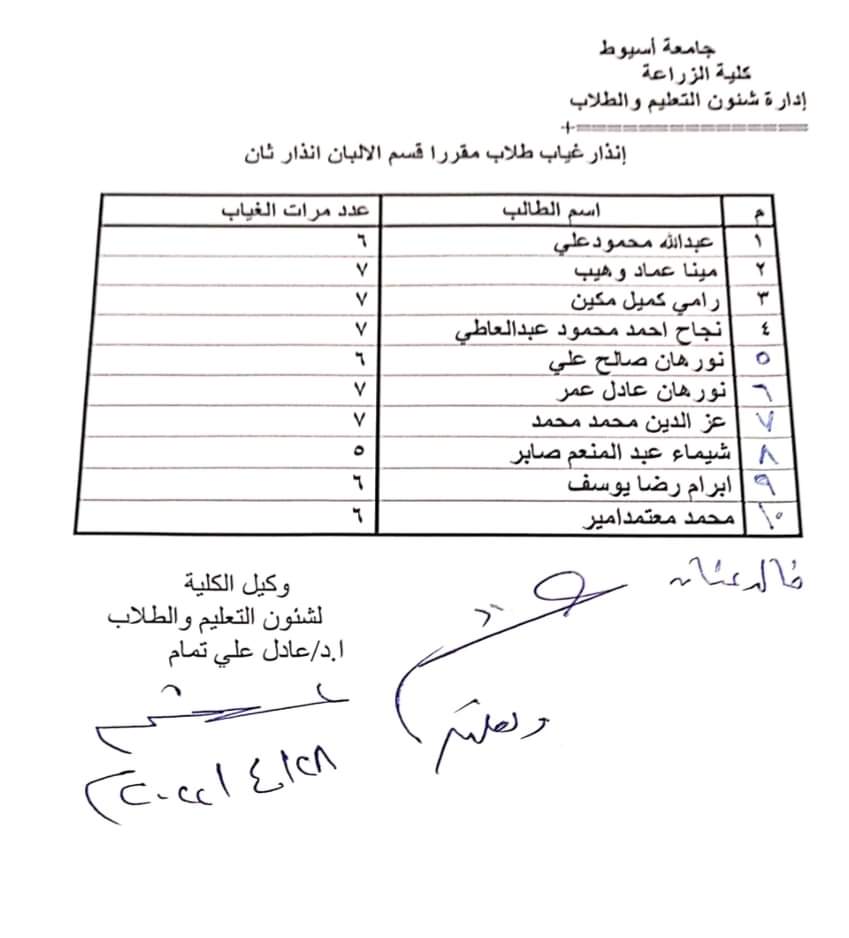 جامعة أسيوط
كلية الزراعة
إدارة شئون التعليم والطلاب
================+
إنذار غياب طلاب مقررا قسم الالبان انذار ثان
م اسم الطالب عدد مرات الغياب
١ عبدالله محمودعلي ٦
٢ مينا عماد وهيب ٧
٣ رامي كميل مكين ٧
٤ نجاح احمد محمود عبدالعاطي ٧
٥ نورهان صالح علي ٦
٦ نورهان عادل عمر ٧
٧ عز الدين محمد محمد ٧
٨ شيماء عبد المنعم صابر ٥
٩ ابرام رضا يوسف ٦
١٠ محمد معتمدامير ٦
وكيل الكلية
لشئون التعليم والطلاب
ا.د/عادل علي تمام
٢٠٢٢/٤/٢٨